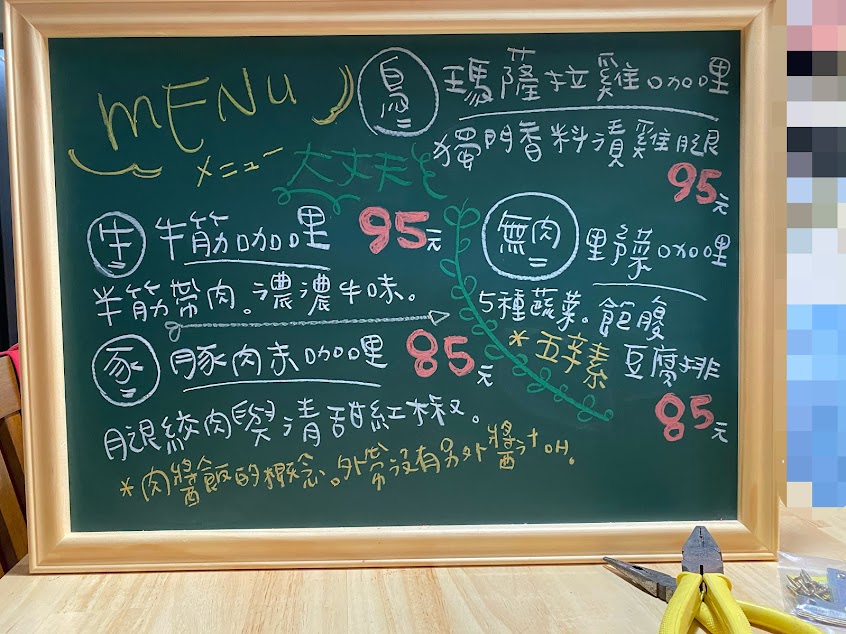 MENU
メニュー
大丈夫
鳥 瑪薩拉雞咖哩
獨門香料漬雞腿
95元
牛 牛筋咖哩 95元
半筋帶肉。濃濃牛味。
豕 豚肉末咖哩 85元
腿絞肉與清甜紅椒。
*肉醬飯的概念。外帶沒有另外醬汁哦。
無肉 野菜咖哩
5種蔬菜。飽腹
*五辛素 豆腐排
85元